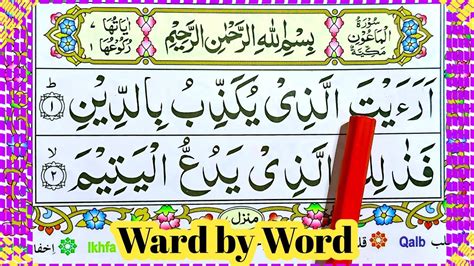 سُوْرَةُ الْمَاعُوْنِ مَكِّيَّةٌ
بِسْمِ اللهِ الرَّحْمٰنِ الرَّحِيْمِ
اٰيَاتُهَا ٧
رُكُوْعُهَا ١
اَرَءَيْتَ الَّذِىْ يُكَذِّبُ بِالدِّيْنِ ط ١
فَذٰلِكَ الَّذِىْ يَدُعُّ الْيَتِيْمَ لا ٢
منزل
Ward by Word
Qalb
Ikhfa
إخفا